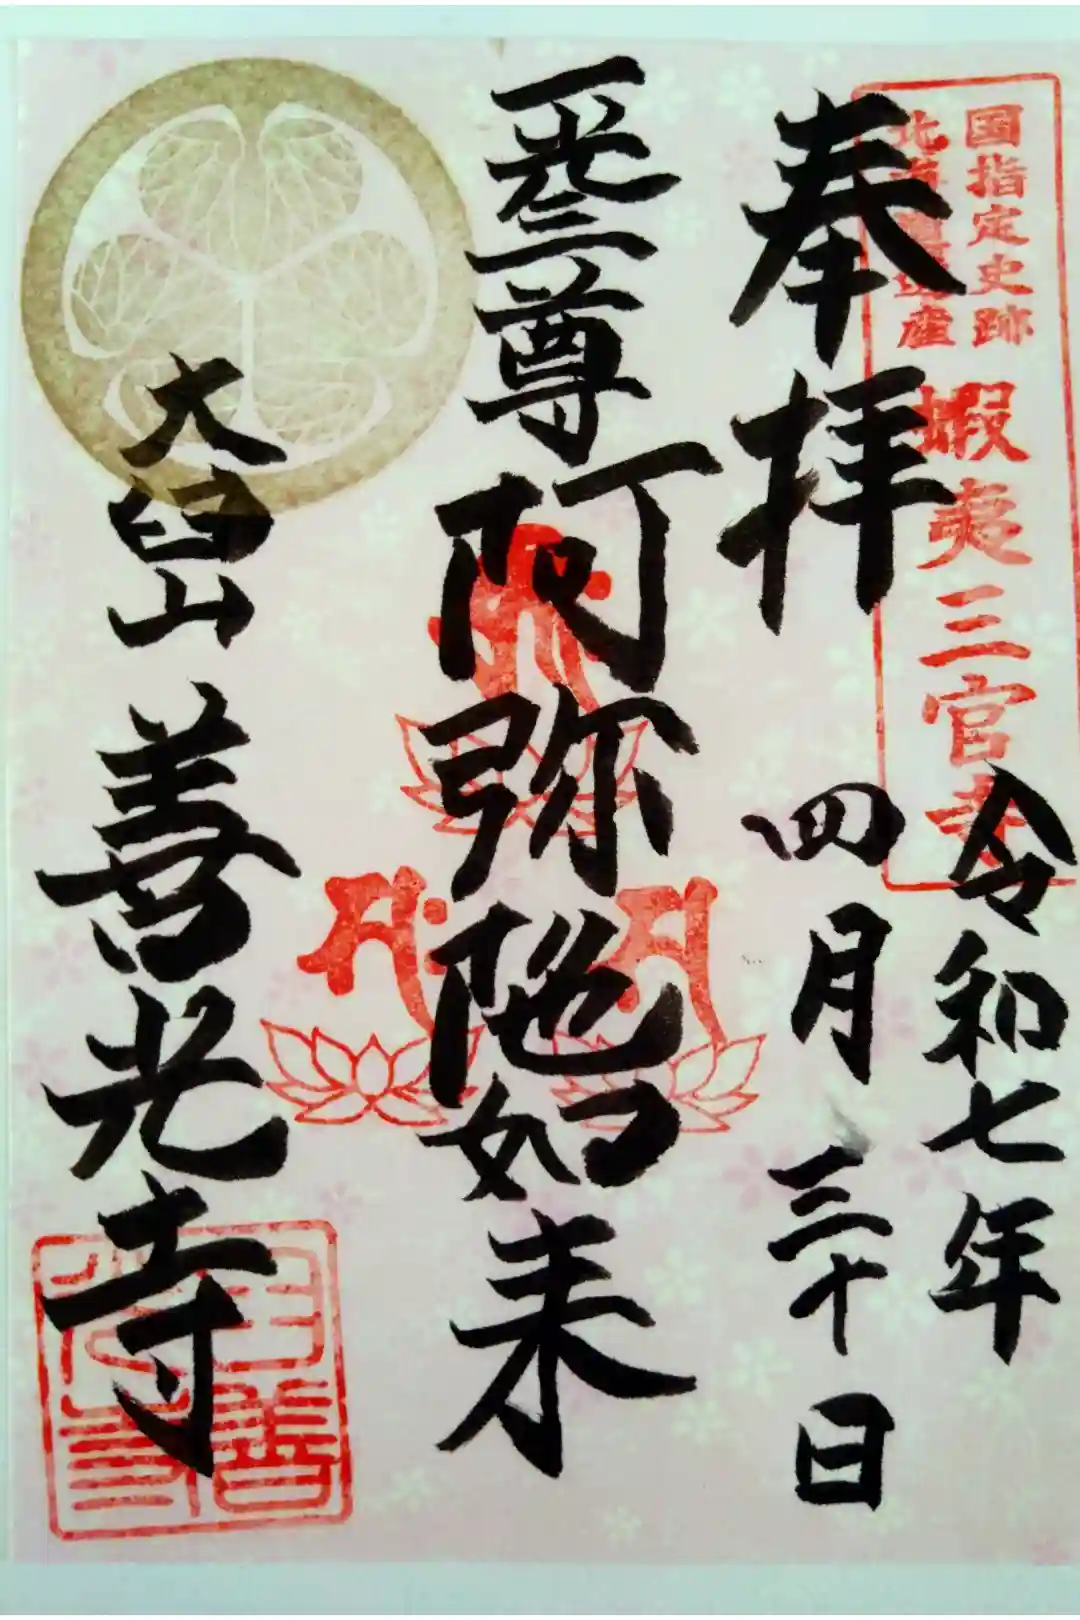 国指定史跡
北海道遺産
蝦夷三官寺
奉拝
令和七年
四月三十日
一光三尊
阿弥陀如来
大臼山
善光寺